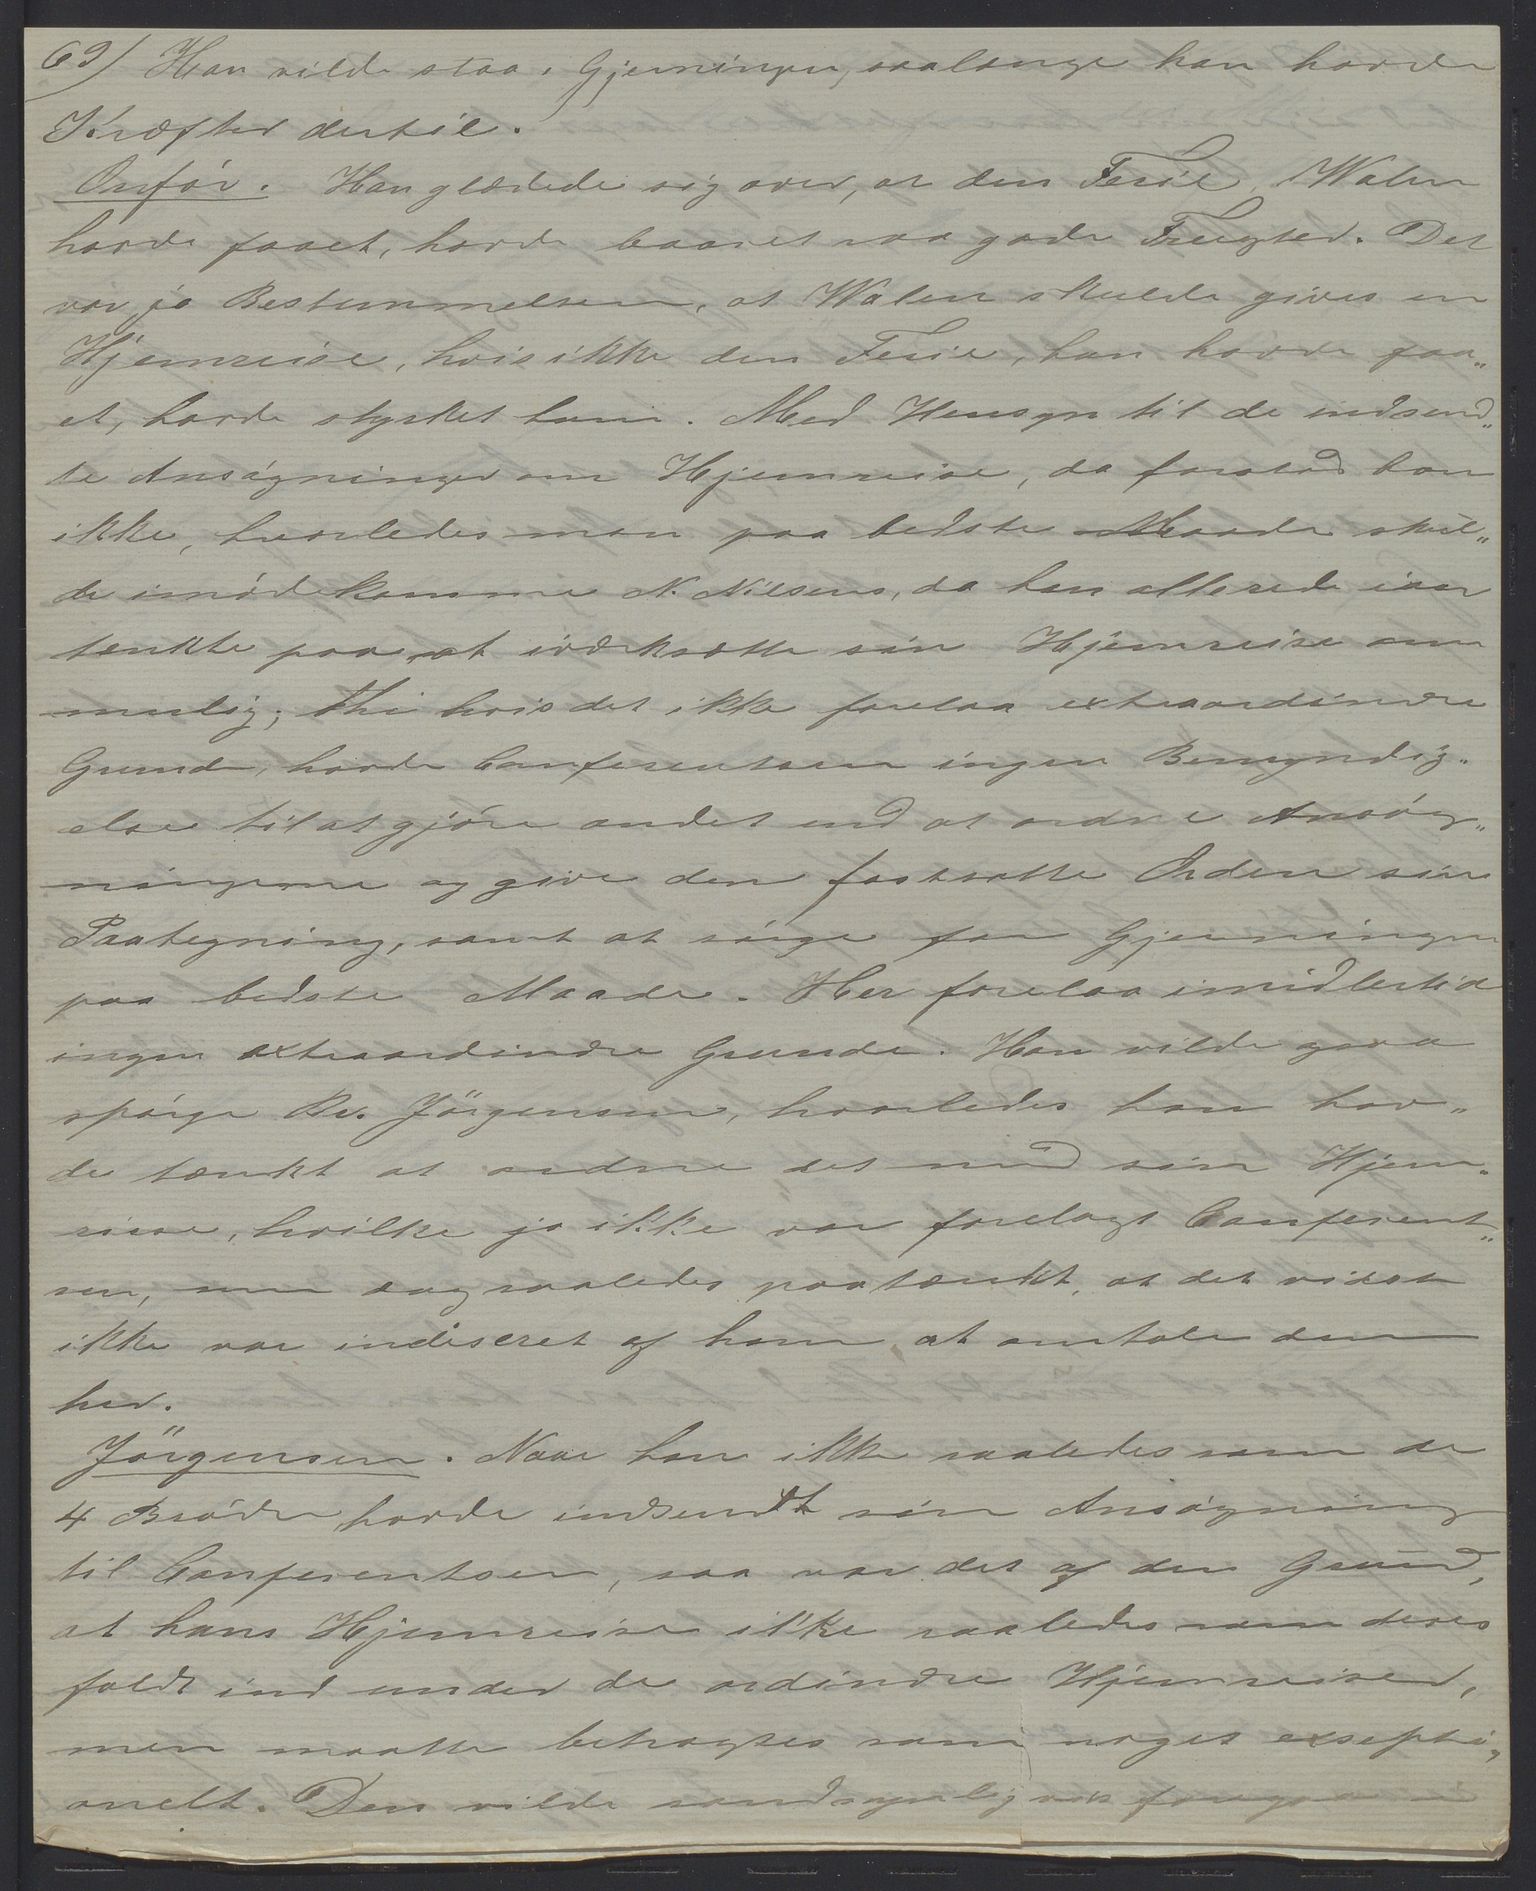 69) Han vilde staa i Gjerningen, saalænge han havde
Kræfter dertil.
Ordför. Han glædede sig over, at den Ferie, Walen
havde faaet, havde baaret saa gode Frugter. Det
var jo Bestemmelsen, at Walen skulde gives en
Hjemreise, hvis ikke den Ferie, han havde faa„
et, havde styrket ham. Med Hensyn til de indsend„
te Ansögninger om Hjemreise, da forstod han
ikke, hvorledes man paa bedste Maade skul„
de imödekomme N. Nilsens, da han allerede iaar
tænkte paa at iværksætte sin Hjemreise om
mulig; thi hvis det ikke forelaa extraordinære
Grunde, havde Conferentsen ingen Bemyndig„
else til at gjöre andet end at ordne Ansög„
ningerne og give den fastsatte Orden sin
Paategning, samt at sörge for Gjerningen
paa bedste Maade. Her forelaa imidlertid
ingen extraordinære Grunde. Han vilde ogsaa
spörge Br. Jörgensen, hvorledes han hav„
de tænkt at ordne det med sin Hjem„
reise, hvilke jo ikke var forelagt Conferent„
sen, men dog saaledes paatænkt, at det vidst
ikke var indiscret af ham at omtale den
her.
Jörgensen. Naar han ikke saaledes som de
4 Brödre havde indsendt sin Ansögning
til Conferentsen, saa var det af den Grund,
at hans Hjemreise ikke saaledes som deres
faldt ind under de ordinære Hjemreiser,
men maatte betragtes som noget exsepti„
onelt. Den vilde sandsynligvis foregaa i